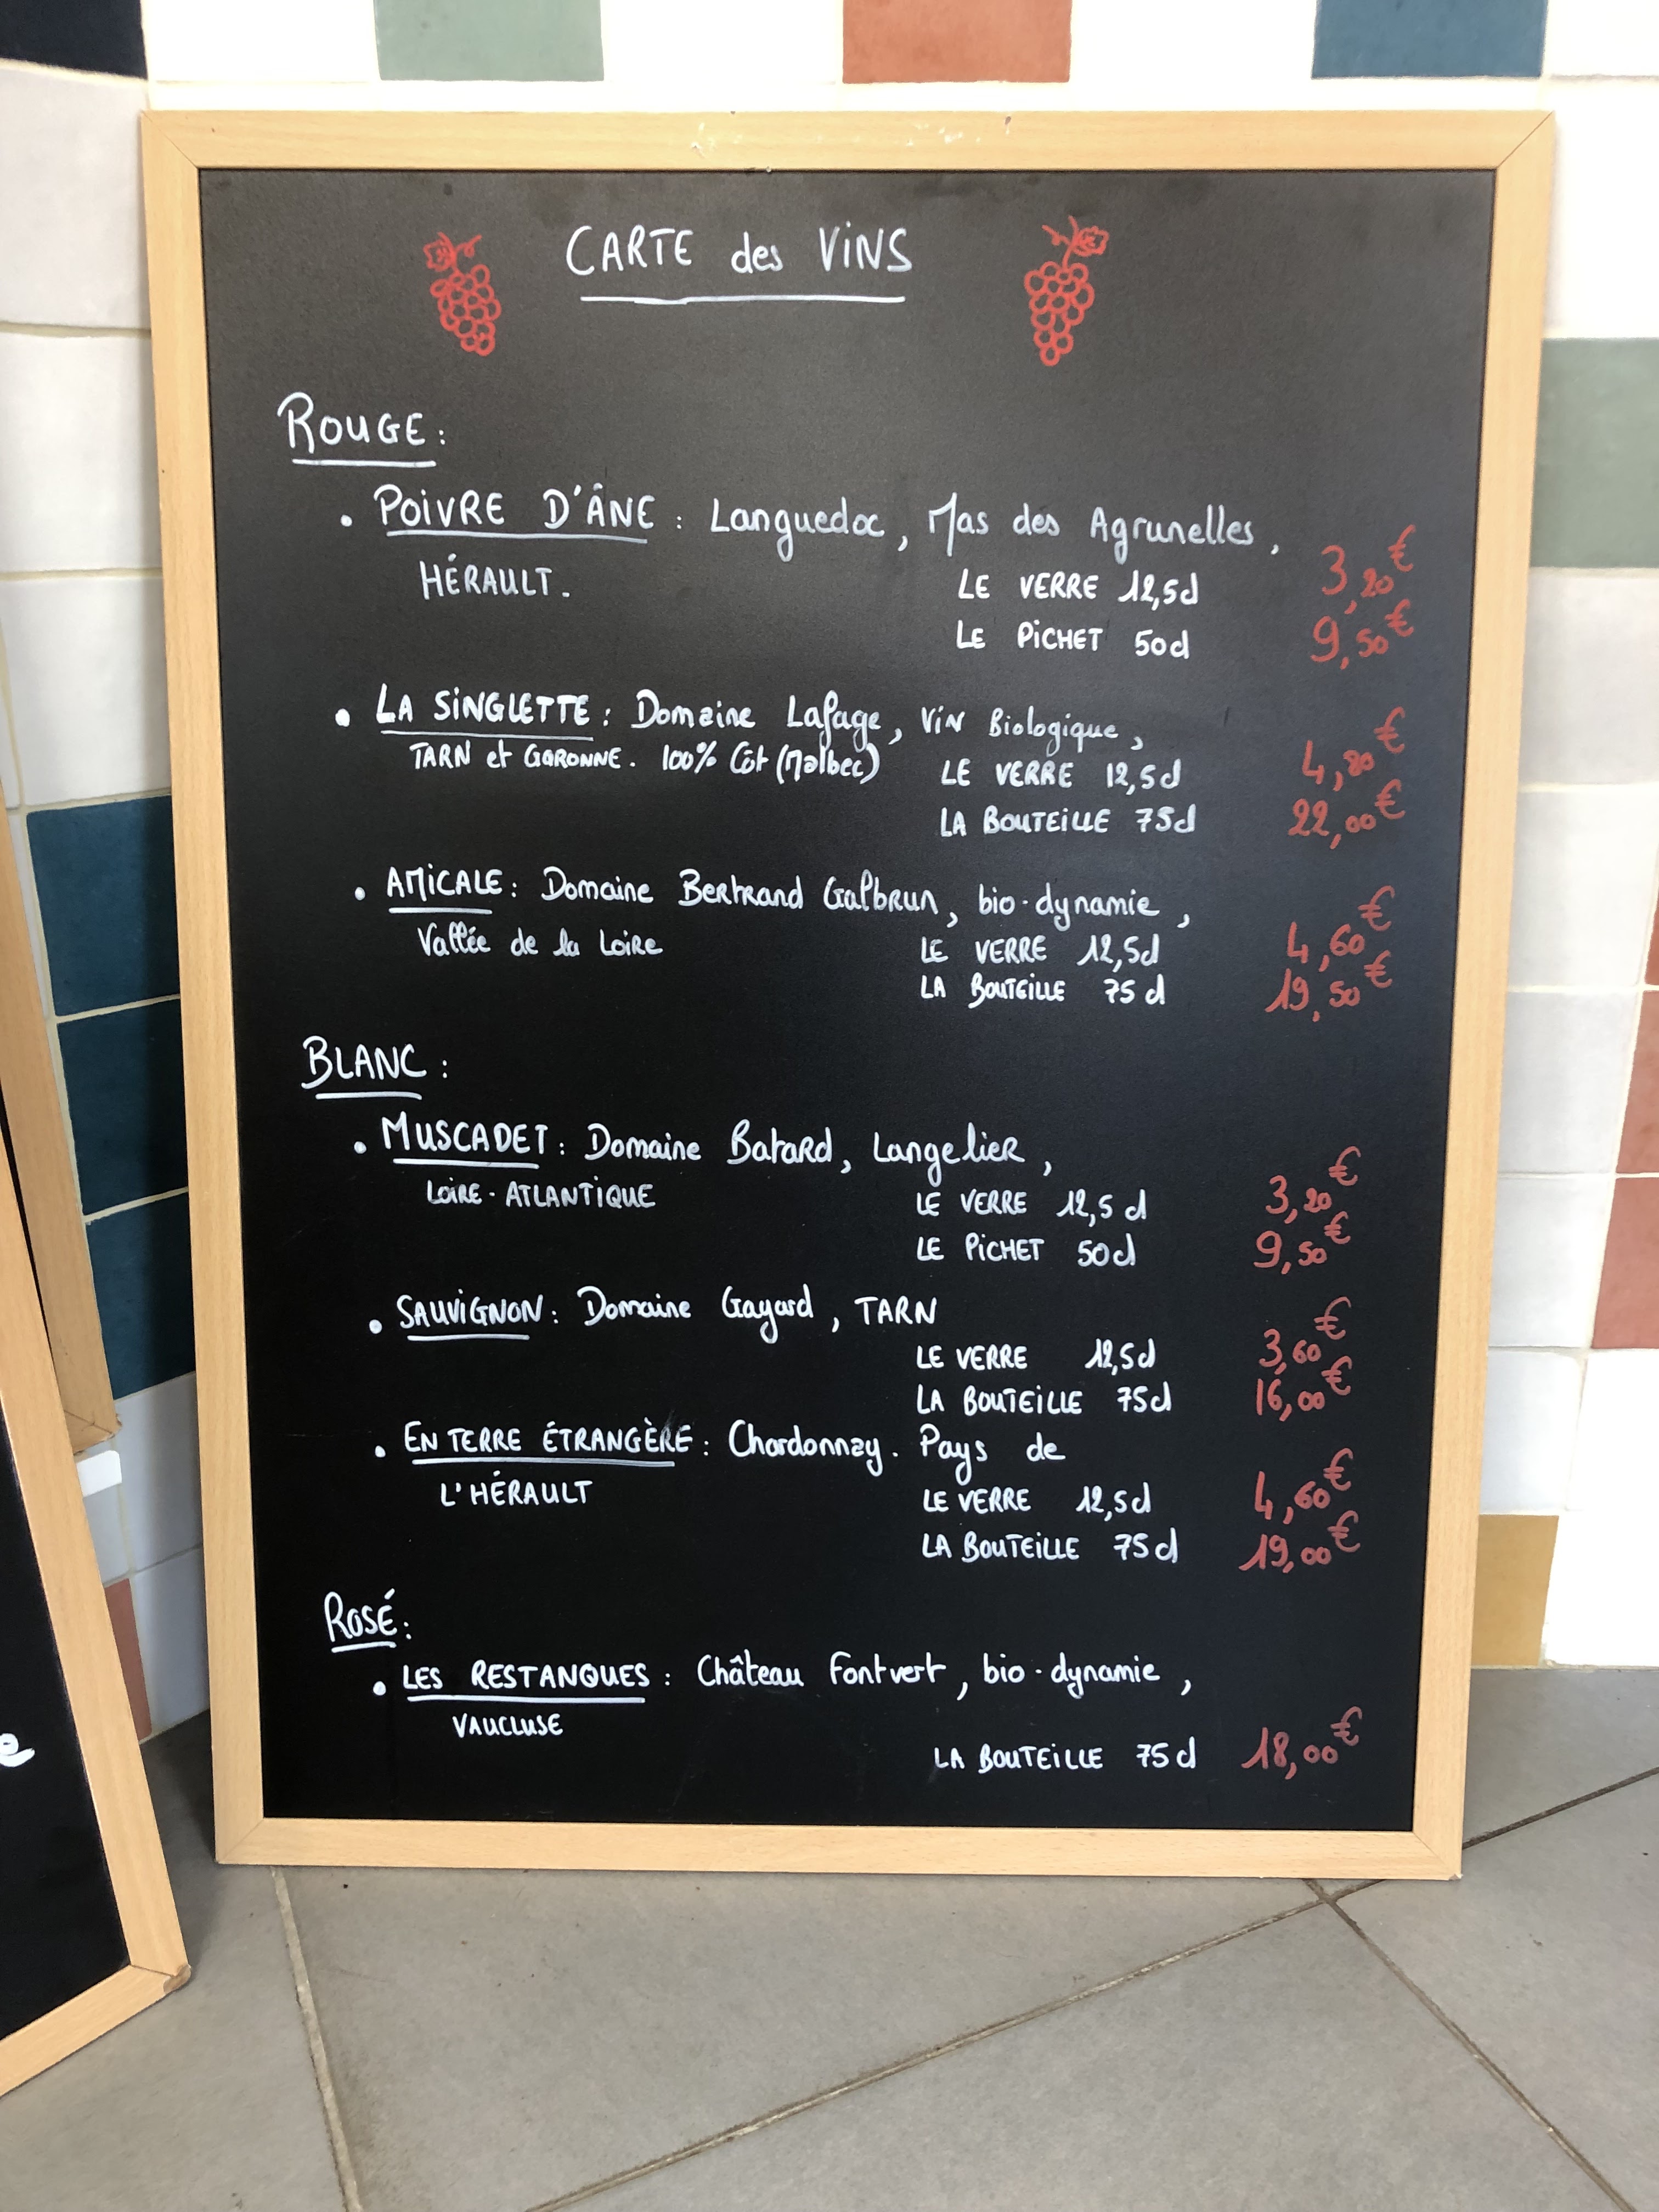 CARTE des VINS
ROUGE :
• POIVRE D'ÂNE : Languedoc, Mas des Agrunelles,
HÉRAULT. LE VERRE 12,5cl 3,20€
LE PICHET 50cl 9,50€
• LA SINGLETTE : Domaine Lafage, Vin Biologique,
TARN et GARONNE. 100% Côt (Malbec) LE VERRE 12,5cl 4,80€
LA BOUTEILLE 75cl 22,00€
• AMICALE : Domaine Bertrand Galbrun, bio-dynamie,
Vallée de la Loire LE VERRE 12,5cl 4,60€
LA BOUTEILLE 75cl 19,50€
BLANC :
• MUSCADET : Domaine Batard, Langelier,
LOIRE-ATLANTIQUE LE VERRE 12,5cl 3,20€
LE PICHET 50cl 9,50€
• SAUVIGNON : Domaine Gayard, TARN
LE VERRE 12,5cl 3,60€
LA BOUTEILLE 75cl 16,00€
• EN TERRE ÉTRANGÈRE : Chardonnay. Pays de
L'HÉRAULT LE VERRE 12,5cl 4,60€
LA BOUTEILLE 75cl 19,00€
ROSÉ :
• LES RESTANQUES : Château Fontvert, bio-dynamie,
VAUCLUSE
LA BOUTEILLE 75cl 18,00€
e